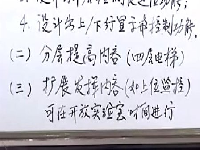 4. 设计出上/下行显示和控制功能.
(二) 分层提高内容 (四层电梯)
(三) 扩展发挥内容 (如上位监控)
可在开放实验室时间进行